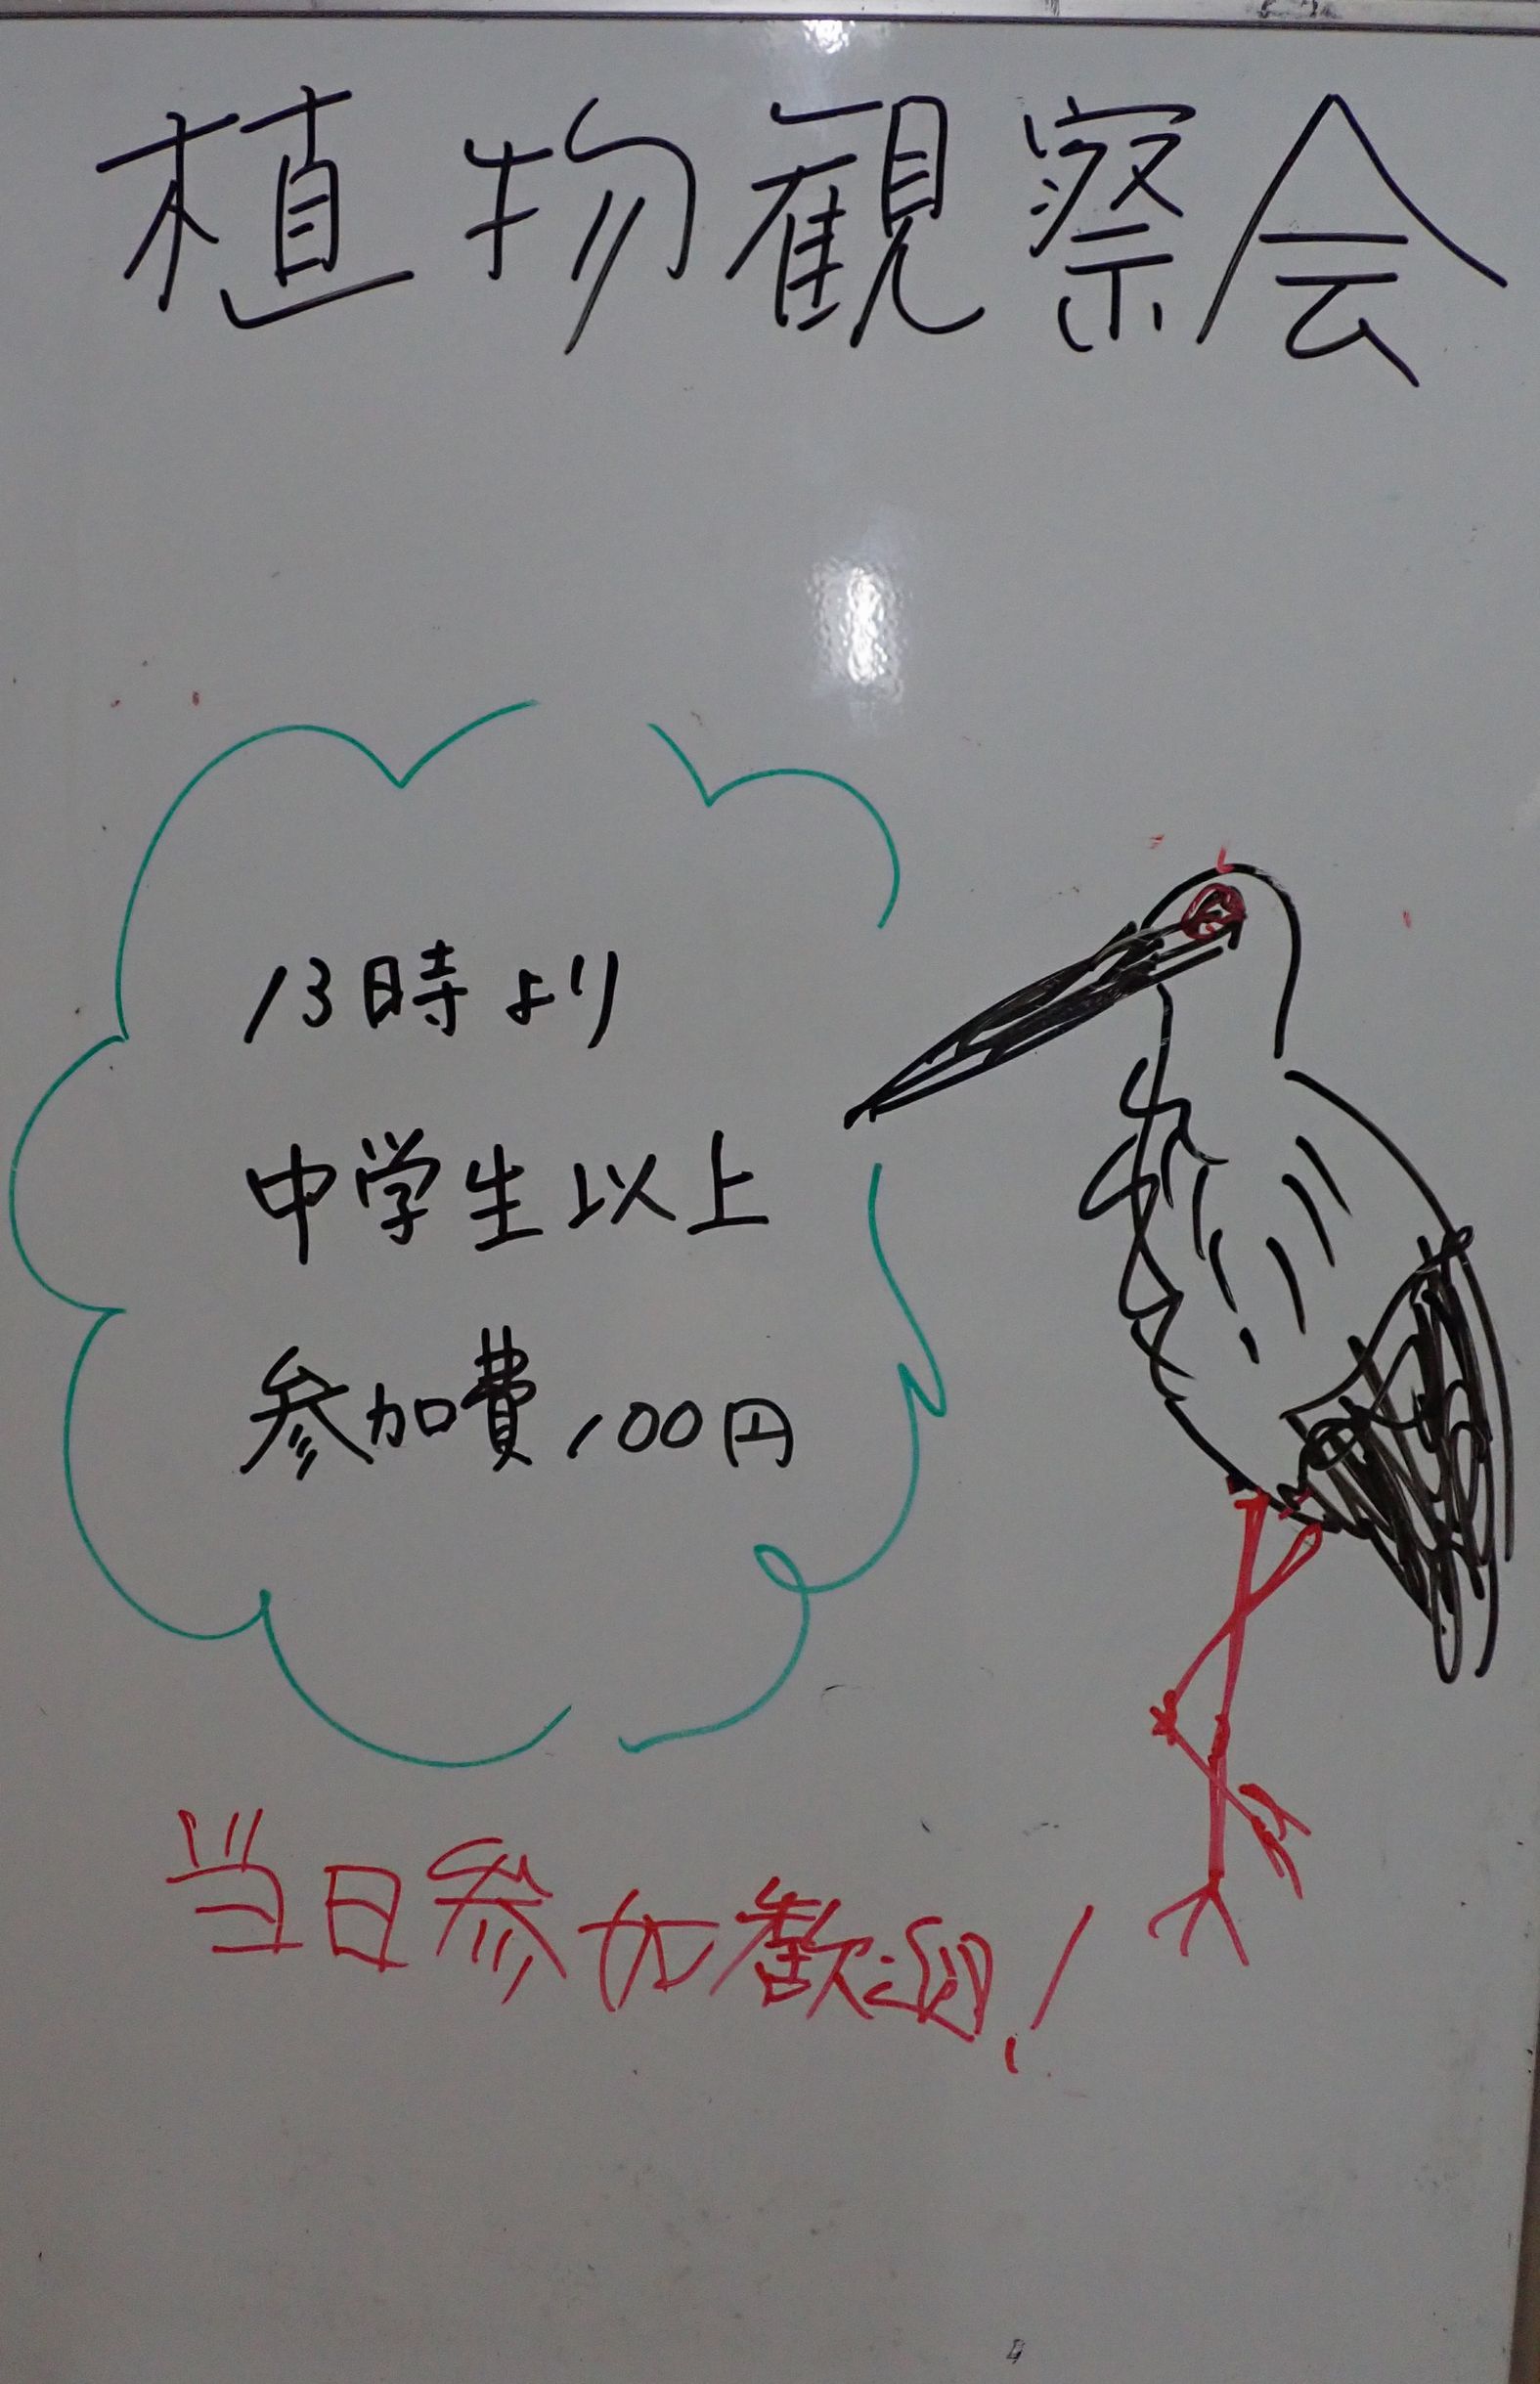 植物観察会
13時より
中学生以上
参加費100円
当日参加歓迎!